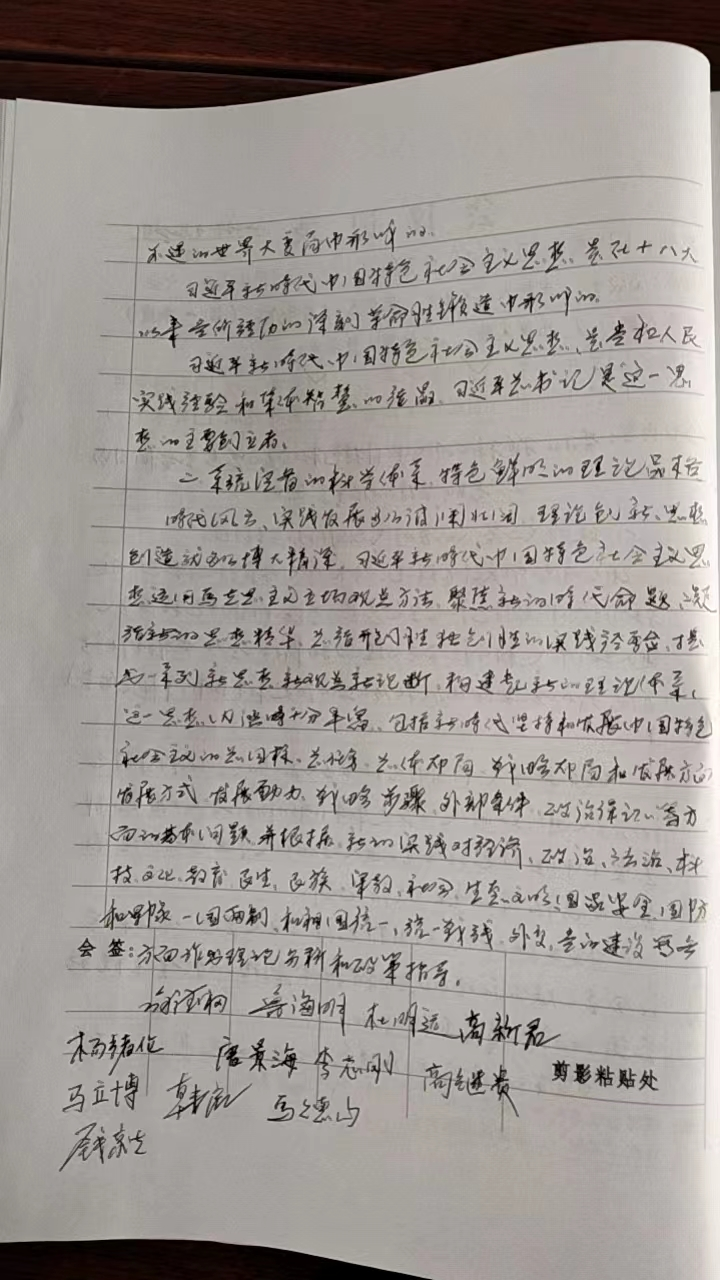 不遇的世界大变局中形成的。
习近平新时代中国特色社会主义思想、是在十八大
以来党所经历的深刻革命性锻造中形成的。
习近平新时代中国特色社会主义思想、是党和人民
实践经验和集体智慧的结晶、习近平总书记是这一思
想的主要创立者。
二系统完备的科学体系、特色鲜明的理论品格
时代风云、实践发展波澜壮阔、理论创新、思想
创造博大精深、习近平新时代中国特色社会主义思
想运用马克思主义立场观点方法、聚焦新的时代命题、
新的思想精华、总结开创性独创性的实践经验、提
出一系列新思想新观点新论断、构建起新的理论体系、
这一思想、内涵十分丰富、包括新时代坚持和发展中国特色
社会主义的总目标、总任务、总体布局、战略布局和发展方向
发展方式、发展动力、战略步骤、外部条件、政治保证等方
面的基本问题、并根据新的实践对经济、政治、法治、科
技、文化、教育、民生、民族、宗教、社会、生态文明、国家安全、国防
和军队、一国两制、和祖国统一、统一战线、外交、党的建设等各
会签:方面作出理论分析和政策指导。
海明 杜明远 高新君
唐景海 李志刚 高继贵 剪影粘贴处
马立博 马德山